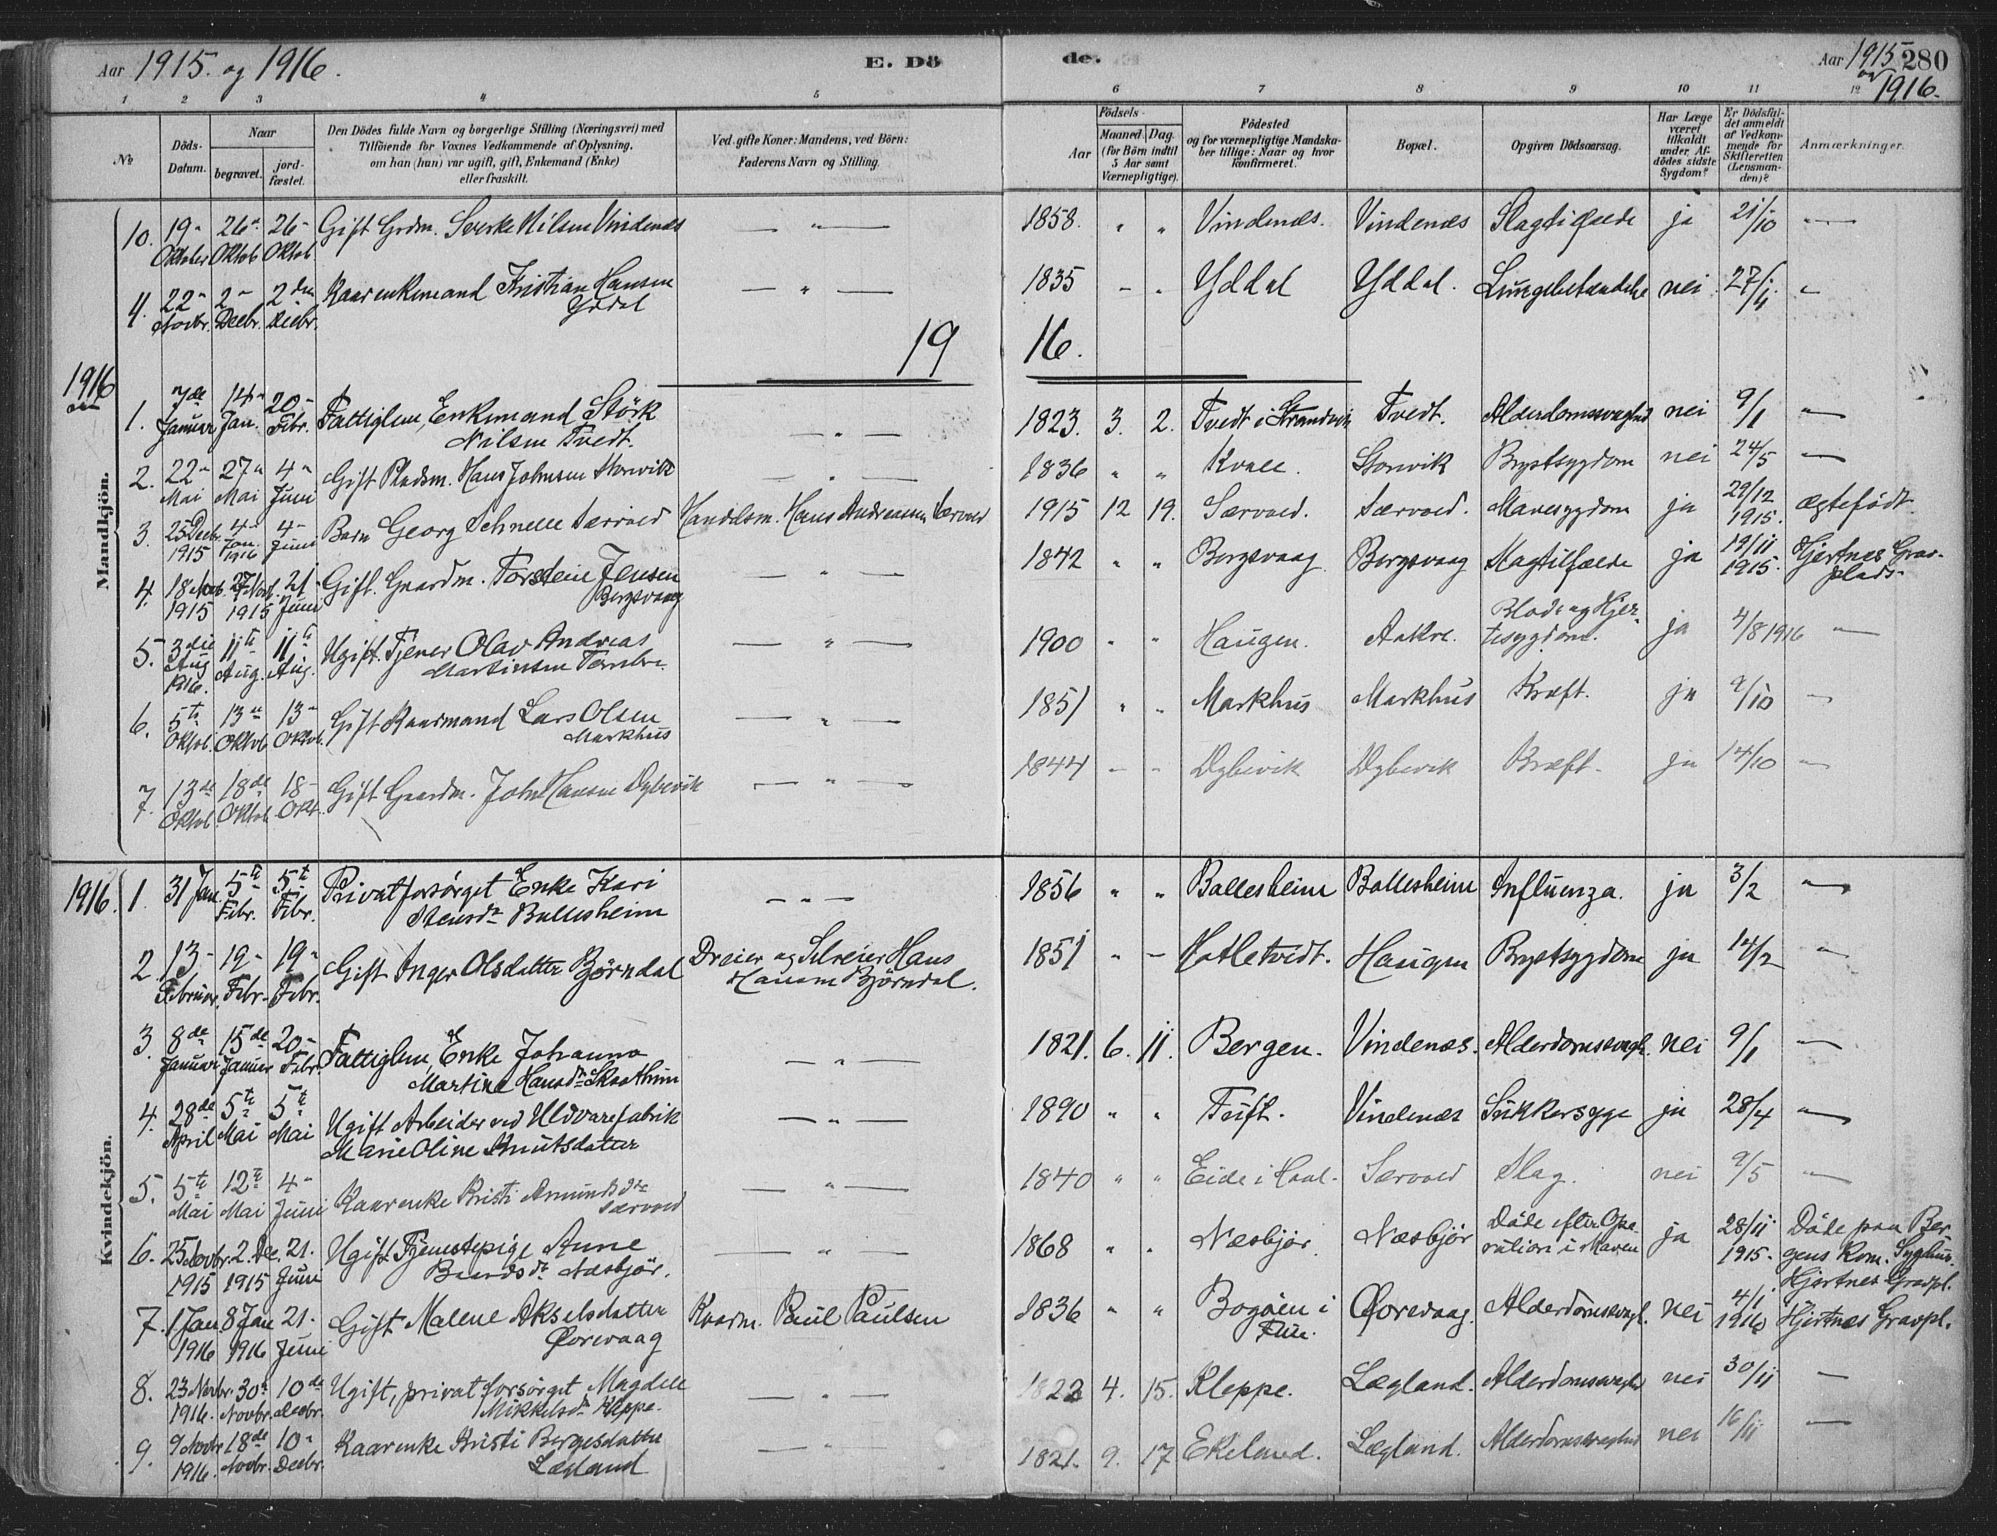 Aar 1915. og 1916.
E. Dö
de.
Aar 1915 280
og 1916.
1 2 3 4 5 6 7 8 9 10 11 12
№
Döds-Datum.
Naar
begravet.
jord-fæstet.
Den Dödes fulde Navn og borgerlige Stilling (Næringsvei) med
Tilföiende for Voxnes Vedkommende af Oplysning,
om han (hun) var ugift, gift, Enkemand (Enke)
eller fraskilt.
Ved gifte Koner: Mandens, ved Börn:
Faderens Navn og Stilling.
Födsels-
Aar
Maaned. Dag.
(for Börn indtil
5 Aar samt
Værnepligtige).
Födested
og for værnepligtige Mandska-
ber tillige: Naar og hvor
konfirmeret.
Bopæl.
Opgiven Dödsaarsag.
Har Læge
været
tilkaldt
under Af-
dödes sidste
Sygdom?
Er Dödsfal-
det anmeldt
af Vedkom-
mende for
Skifteretten
(Lensman-
den)?
Anmærkninger.
10. 19- Oktober 26- Oktob 26- Oktob. Gift Grdm. Sverke Nilsen Vindenæs — " — 1858. " " Vindenæs. Vindenæs Slagtilfælde ja 21/10 —
4. 22- Novbr. 2- Decbr. 2den Decbr. Kaarenkemand Kristian Hansen
Yddal — " — 1835 - " Yddal Yddal. Lungebetændelse nei 27/11. "
19 16.
1916
Mandkjön.
1. 7de Januar 14- Jan. 20- Febr. Fattiglem, Enkemand Störk
Nilsen Tvedt. — " — 1823. 3. 2. Tvedt i Strandvik Tvedt. Alderdomssvaghed nei 9/1 —
2. 22- Mai 27- Mai 4- Juni Gift Pladsm. Hans Johnsen Storvik — " — 1836 " " Kvale. Storvik Brystsygdom nei 24/5 —
3. 25 Decbr. 1915 4- Jan. 1916 4- Juni Barn Georg Schnelle Særvold Handelsm. Hans Andreassen Særvold 1915 12 19. Særvold. Særvold. Mavesygdom ja 29/12 1915. ægtefödt.
4. 18 Novb. 1915 27 Nov. 1915 21- Juni Gift. Gaardm. Torstein Jensen
Bergsvaag — " — 1842 " " Bergsvaag Bergsvaag Slagtilfælde ja 19/11 1915. Hjertnes Grav-
plads-
5. 3die Aug 1916. 11te Aug. 11te Aug. Ugift. Tjener Olav Andreas
Martinsen — " — 1900 " " Haugen. Aakre. Blod- og Hjer-
tesygdom. ja 4/8 1916 —
6. 5te Oktob. 13de Oktob 13- Oktob. Gift Kaarmand Lars Olsen
Markhus — " — 1851 " " Markhus Markhus Kræft. ja 9/10 —
7. 13de Oktob. 18de Oktob. 18- Okt. Gift Gaardm. John Hansen Dybevik — " — 1844 - - Dybevik Dybevik Kræft. ja 14/10 —
1916.
Kvindekjön.
1. 31 Jan. 5te Febr. 5te Febr. Privatforsörget Enke Kari
Stensdr Ballesheim — " — 1856 " " Ballesheim Ballesheim Influenza. ja 3/2 —
2. 13- Februar. 19- Febr. 19- Febr. Gift Inger Olsdatter Björndal Dreier og Hans
Hansen Björndal. 1851 " - Hatletvedt. Haugen Brystsygdom ja 14/2 —
3. 8de Januar 15de Januar 20- Febr. Fattiglem, Enke Johanna
Martine Hansdr Skaathun — " — 1821. 6. 11. Bergen. Vindenæs. Alderdomssvagh. nei 9/1 —
4. 28de April 5te Mai 5te Mai Ugift Arbeider ved Uldvarefabrik
Marie Oline Knutsdatter — " — 1890 " " Tuft. Vindenæs Sukkersyge ja 28/4 —
5. 5te Mai 12te Mai 4- Juni Kaarenke Kristi Amundsdtr
Særvold — " — 1840 " " Eide i Haal. Særvold Slag. nei 9/5 —
6. 25 Novbr. 1915 2. Dec. 1915 21. Juni Ugift Tjenestepige Anne
Baardsdr Næsbjör. — " — 1868 " " Næsbjör Næsbjör Döde efter Ope-
ration i Maven ja 28/11 1915. Döde paa Ber-
gens Kom. Sygehus.
Hjertnes Gravpl.
7. 1 Jan. 1916 8 Jan 1916 21. Juni Gift Malene Akselsdatter
Örevaag Kaarm. Paul Paulsen 1836 " " Bogöen i
Fun. Örevaag. Alderdomssvagh. nei 4/1 1916 Hjertnæs Gravpl.
8. 23 Novbr. 1916. 30te Novbr. 10de Decbr. Ugift, privat forsörget Magdele
Mikkelsdr Kleppe. — " — 1822 4. 15. Kleppe. Lægland. Alderdomssvaghed nei 30/11 —
9. 9 Novbr 1916. 18de Novbr. 10- Decbr. Kaarenke Kristi Bergesdatter
Lægland — " — 1821. 9. 17 Ekeland. Lægland. Alderdomssvaghed nei 16/11 —